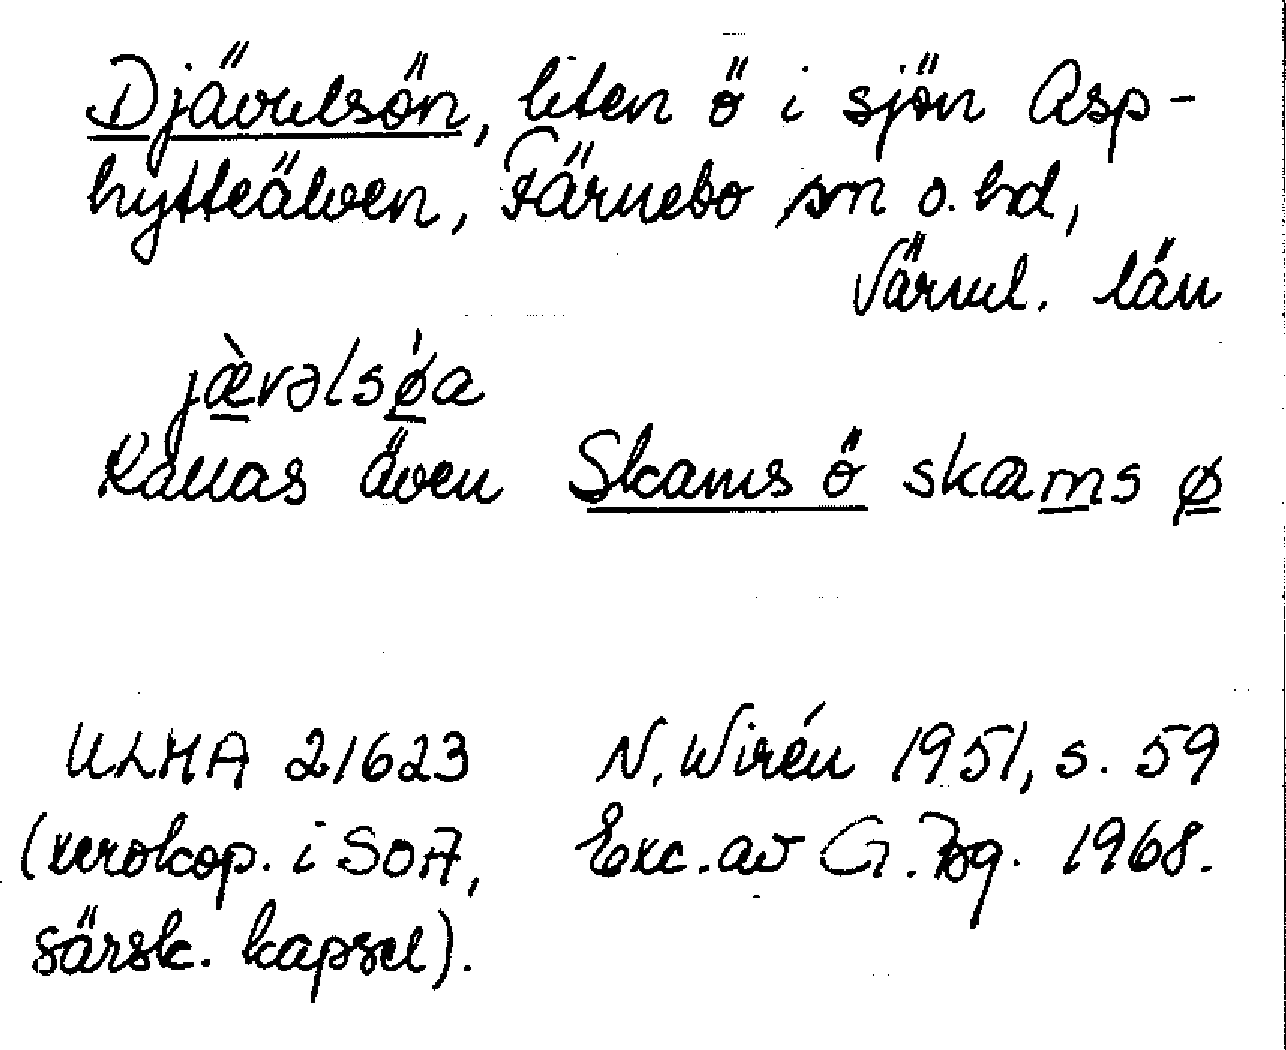 Djävulsön, liten ö i sjön Asp-
hytteälven, Färnebo sn o. hd,
Värml. län
jæ̀vəlsǿa
Kallas även Skams ö skams ø
ULMA 21623 N. Wirén 1951, s. 59
(xerokop. i SOA, Exc. av G. Bg. 1968.
särsk. kapsel).